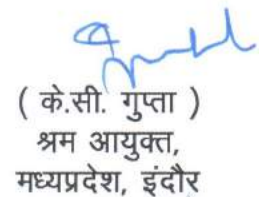 ( के.सी. गुप्ता )
श्रम आयुक्त,
मध्यप्रदेश, इंदौर